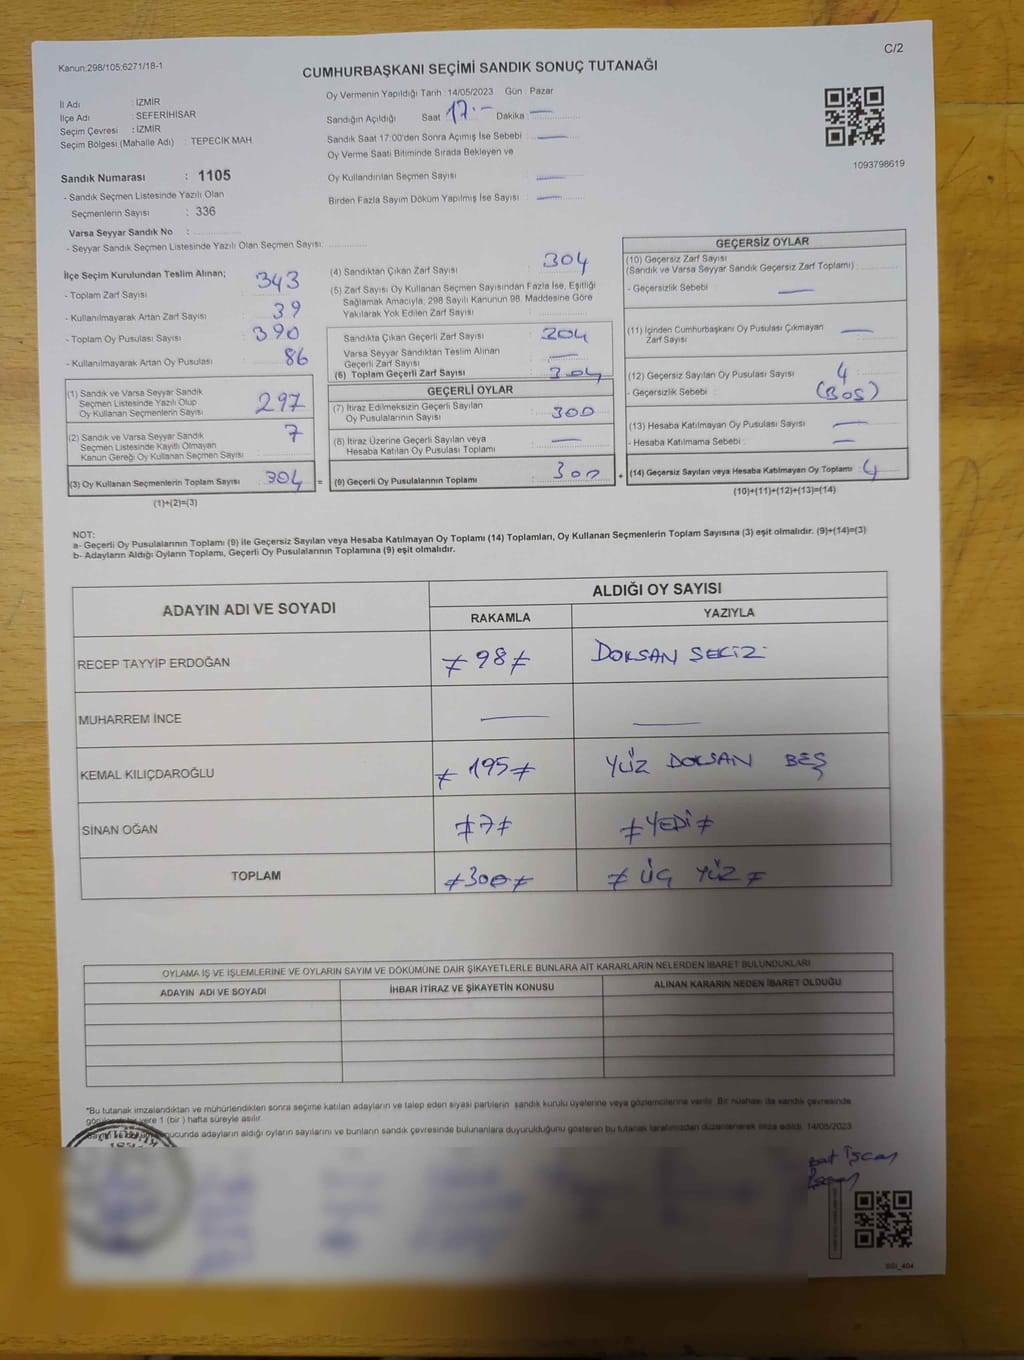 Kanun;298/105,6271/18-1
C/2
CUMHURBAŞKANI SEÇİMİ SANDIK SONUÇ TUTANAĞI
İl Adı : İZMİR
İlçe Adı : SEFERİHİSAR
Seçim Çevresi : İZMİR
Seçim Bölgesi (Mahalle Adı) : TEPECİK MAH
Oy Vermenin Yapıldığı Tarih : 14/05/2023 Gün : Pazar
Sandığın Açıldığı Saat 17.- Dakika —
Sandık Saat 17:00'den Sonra Açımış İse Sebebi —
Oy Verme Saati Bitiminde Sırada Bekleyen ve
Oy Kullandırılan Seçmen Sayısı —
Birden Fazla Sayım Döküm Yapılmış İse Sayısı —
1093798619
Sandık Numarası : 1105
- Sandık Seçmen Listesinde Yazılı Olan
Seçmenlerin Sayısı : 336
Varsa Seyyar Sandık No :
- Seyyar Sandık Seçmen Listesinde Yazılı Olan Seçmen Sayısı:
İlçe Seçim Kurulundan Teslim Alınan;
- Toplam Zarf Sayısı 343
- Kullanılmayarak Artan Zarf Sayısı 39
- Toplam Oy Pusulası Sayısı 390
- Kullanılmayarak Artan Oy Pusulası 86
(1) Sandık ve Varsa Seyyar Sandık
Seçmen Listesinde Yazılı Olup
Oy Kullanan Seçmenlerin Sayısı 297
(2) Sandık ve Varsa Seyyar Sandık
Seçmen Listesinde Kayıtlı Olmayan
Kanun Gereği Oy Kullanan Seçmen Sayısı 7
(3) Oy Kullanan Seçmenlerin Toplam Sayısı 304 =
(1)+(2)=(3)
(4) Sandıktan Çıkan Zarf Sayısı 304
(5) Zarf Sayısı Oy Kullanan Seçmen Sayısından Fazla İse, Eşitliği
Sağlamak Amacıyla, 298 Sayılı Kanunun 98. Maddesine Göre
Yakılarak Yok Edilen Zarf Sayısı
Sandıkta Çıkan Geçerli Zarf Sayısı 304
Varsa Seyyar Sandıktan Teslim Alınan
Geçerli Zarf Sayısı —
(6) Toplam Geçerli Zarf Sayısı 304
GEÇERLİ OYLAR
(7) İtiraz Edilmeksizin Geçerli Sayılan
Oy Pusulalarının Sayısı 300
(8) İtiraz Üzerine Geçerli Sayılan veya
Hesaba Katılan Oy Pusulası Toplamı —
(9) Geçerli Oy Pusulalarının Toplamı 300 +
GEÇERSİZ OYLAR
(10) Geçersiz Zarf Sayısı
(Sandık ve Varsa Seyyar Sandık Geçersiz Zarf Toplamı)
- Geçersizlik Sebebi : —
(11) İçinden Cumhurbaşkanı Oy Pusulası Çıkmayan
Zarf Sayısı —
(12) Geçersiz Sayılan Oy Pusulası Sayısı 4
- Geçersizlik Sebebi : (BOŞ)
(13) Hesaba Katılmayan Oy Pusulası Sayısı —
- Hesaba Katılmama Sebebi : —
(14) Geçersiz Sayılan veya Hesaba Katılmayan Oy Toplamı 4
(10)+(11)+(12)+(13)=(14)
NOT:
a- Geçerli Oy Pusulalarının Toplamı (9) ile Geçersiz Sayılan veya Hesaba Katılmayan Oy Toplamı (14) Toplamları, Oy Kullanan Seçmenlerin Toplam Sayısına (3) eşit olmalıdır. (9)+(14)=(3)
b- Adayların Aldığı Oyların Toplamı, Geçerli Oy Pusulalarının Toplamına (9) eşit olmalıdır.
ADAYIN ADI VE SOYADI
ALDIĞI OY SAYISI
RAKAMLA YAZIYLA
RECEP TAYYİP ERDOĞAN ≠98≠ DOKSAN SEKİZ
MUHARREM İNCE — —
KEMAL KILIÇDAROĞLU ≠195≠ YÜZ DOKSAN BEŞ
SİNAN OĞAN ≠7≠ ≠YEDİ≠
TOPLAM ≠300≠ ≠ÜÇ YÜZ≠
OYLAMA İŞ VE İŞLEMLERİNE VE OYLARIN SAYIM VE DÖKÜMÜNE DAİR ŞİKAYETLERLE BUNLARA AİT KARARLARIN NELERDEN İBARET BULUNDUKLARI
ADAYIN ADI VE SOYADI İHBAR İTİRAZ VE ŞİKAYETİN KONUSU ALINAN KARARIN NEDEN İBARET OLDUĞU
*Bu tutanak imzalandıktan ve mühürlendikten sonra seçime katılan adayların ve talep eden siyasi partilerin sandık kurulu üyelerine veya gözlemcilerine verilir. Bir nüshası da sandık çevresinde
bir yere 1 (bir) hafta süreyle asılır.
adayların aldığı oyların sayılarını ve bunların sandık çevresinde bulunanlara duyurulduğunu gösteren bu tutanak tarafımızdan düzenlenerek imza edildi. 14/05/2023
İşcan
İşcan
SSI_404